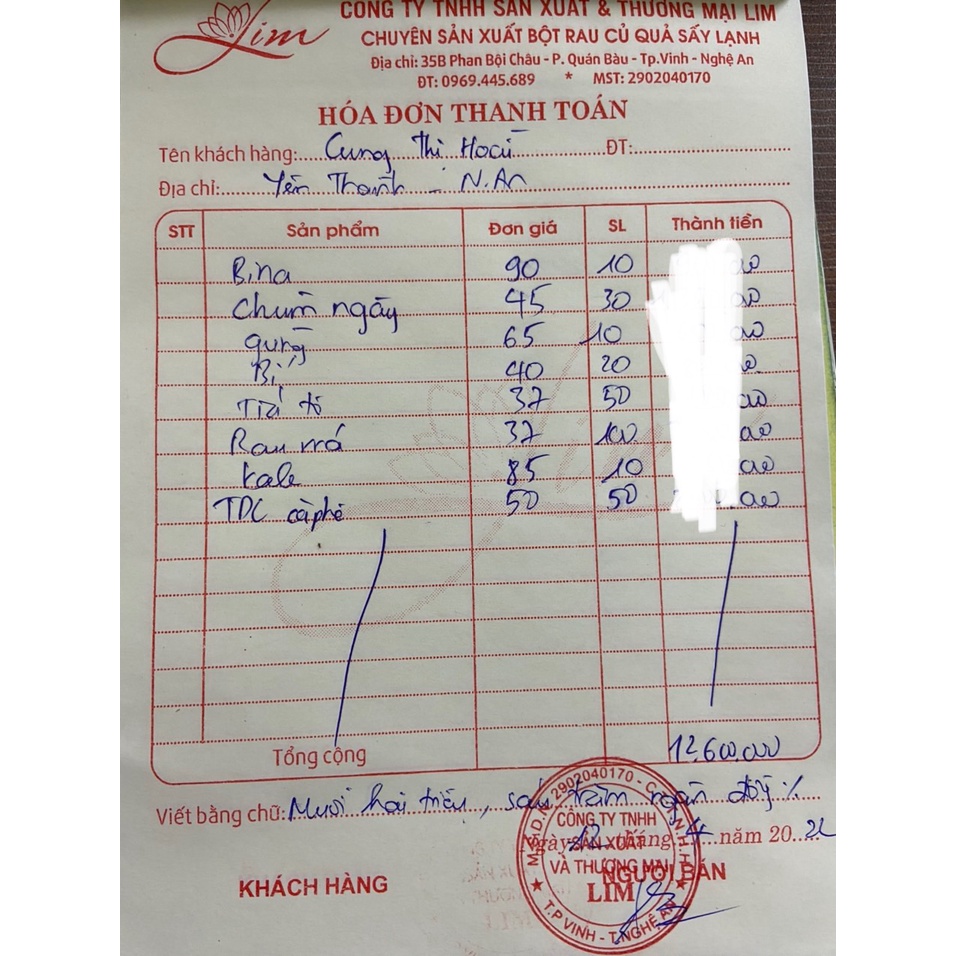 Lim
CÔNG TY TNHH SẢN XUẤT & THƯƠNG MẠI LIM
CHUYÊN SẢN XUẤT BỘT RAU CỦ QUẢ SẤY LẠNH
Địa chỉ: 35B Phan Bội Châu - P. Quán Bàu - Tp.Vinh - Nghệ An
ĐT: 0969.445.689 * MST: 2902040170
HÓA ĐƠN THANH TOÁN
Tên khách hàng: Cung Thị ĐT:
Địa chỉ: Yên Thành - N.An
STT Sản phẩm Đơn giá SL Thành tiền
Bina 90 10
Chùm ngây 45 30
gừng 65 10
Bí 40 20
Tía tô 37 50
Rau má 37 100
kale 85 10
TDC cà phê 50 50
Tổng cộng 12.600.000
Viết bằng chữ: Mười hai triệu, sáu trăm ngàn đồng %
Ngày 12 tháng 4 năm 2022
KHÁCH HÀNG NGƯỜI BÁN
M.S.D.N: 2902040170 - C.T.T.N.H.H
CÔNG TY TNHH
SẢN XUẤT
VÀ THƯƠNG MẠI
LIM
T.P VINH - T.NGHỆ AN